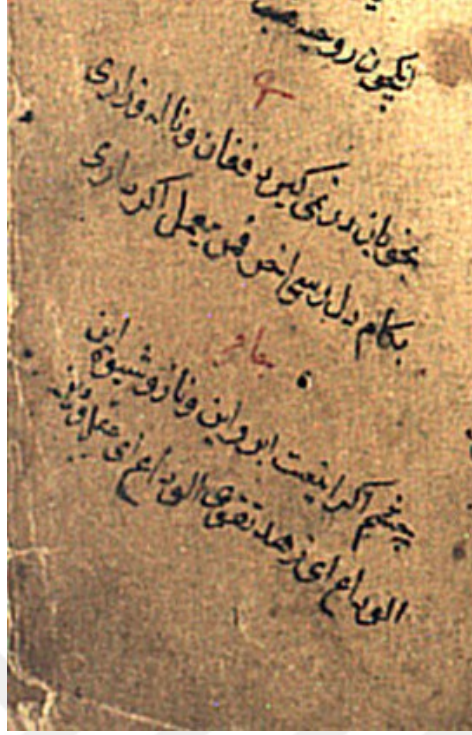 ایکون روحیه هب
بخوبان درنمی کیرد فغان وناله وزاری
بکام دل رسی اخر فن یعمل اکر داری
چشم اکر اینست ابرو این وناز وشیوه این
الوداع ای زهد تقوی الوداع ای عقل ودین